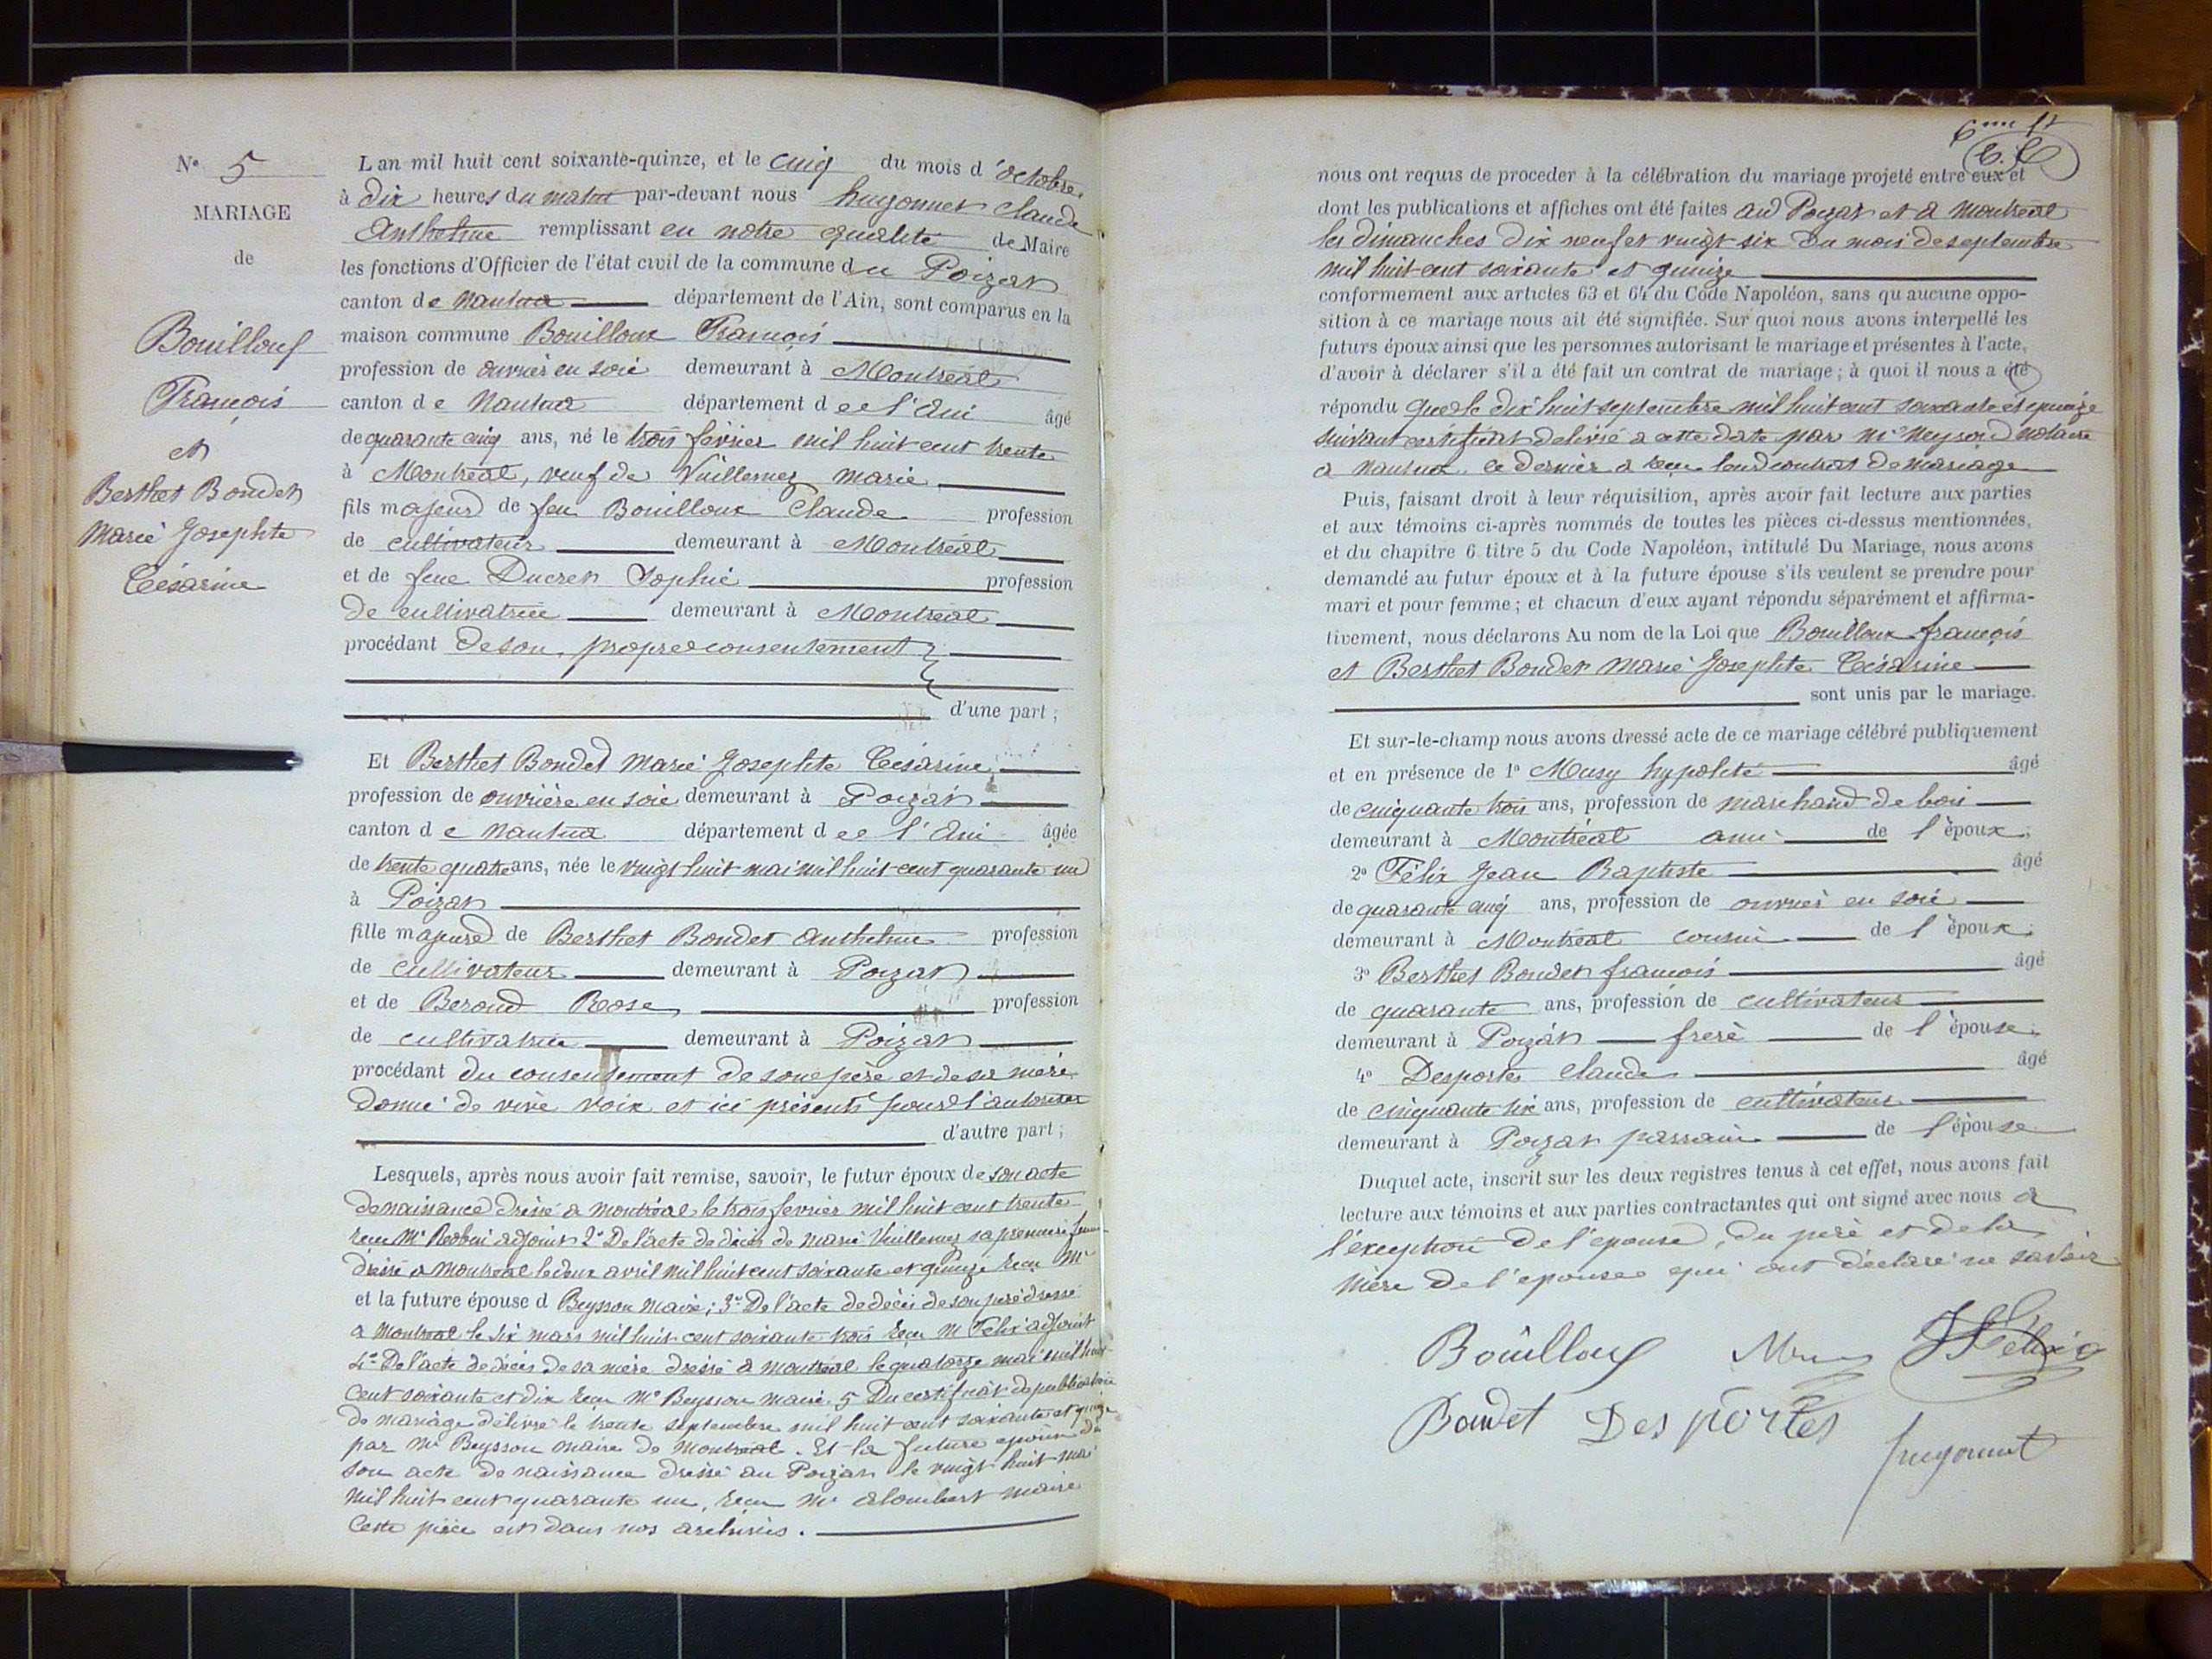 N° 5
MARIAGE
de
Bouilloux
François
et
Berthet Bondet
Marie Josephte
Césarine
L'an mil huit cent soixante-quinze, et le cinq du mois d'octobre
à dix heures du matin par-devant nous huyonnet Claude
Anthelme remplissant en notre qualité de Maire
les fonctions d'Officier de l'état civil de la commune du Poizat
canton de Nantua département de l'Ain, sont comparus en la
maison commune Bouilloux François
profession de ouvrier en soie demeurant à Montréal
canton de Nantua département de l'Ain âgé
de quarante cinq ans, né le trois février mil huit cent trente
à Montréal, veuf de Vuillermez Marie
fils majeur de feu Bouilloux Claude profession
de cultivateur demeurant à Montréal
et de feue Ducret Sophie profession
de cultivatrice demeurant à Montréal
procédant de son propre consentement
d'une part;
Et Berthet Bondet Marie Josephte Césarine
profession de ouvrière en soie demeurant à Poizat
canton de Nantua département de l'Ain âgée
de trente quatre ans, née le vingt huit mai mil huit cent quarante un
à Poizat
fille majeure de Berthet Bondet Anthelme profession
de cultivateur demeurant à Poizat
et de Beroud Rose profession
de cultivatrice demeurant à Poizat
procédant du consentement de son père et de sa mère
donné de vive voix et ici présents pour l'autoriser
d'autre part;
Lesquels, après nous avoir fait remise, savoir, le futur époux de son acte
de naissance dressé a Montréal le trois fevrier mil huit cent trente
reçu Mr adjoint 2° De l'acte de décès de Marie Vuillermez sa premiere femme
dressé a Montreal le deux avril mil huit cent soixante et quinze reçu Mr
et la future épouse d Beysson maire; 3° De l'acte de décès de son père dressé
a Montreal le six mars mil huit cent soixante trois reçu Mr Felix adjoint
4° De l'acte de décès de sa mère dressé a Montreal le quatorze mai mil huit
cent soixante et dix reçu Mr Beysson maire. 5 Du certificat de publication
de mariage délivré le trente septembre mil huit cent soixante et quinze
par Mr Beysson maire de Montreal. Et la future epouse de
son acte de naissance dressé au Poizat le vingt huit mai
mil huit cent quarante un, reçu Mr Alombert maire
Cette pièce est dans nos archives.
nous ont requis de proceder à la célébration du mariage projeté entre eux et
dont les publications et affiches ont été faites au Poizat et a Montreal
les dimanches dix neuf et vingt six du mois de septembre
mil huit cent soixante et quinze
conformement aux articles 63 et 64 du Code Napoléon, sans qu'aucune oppo-
sition à ce mariage nous ait été signifiée. Sur quoi nous avons interpellé les
futurs époux ainsi que les personnes autorisant le mariage et présentes à l'acte,
d'avoir à déclarer s'il a été fait un contrat de mariage; à quoi il nous a été
répondu que le dix huit septembre mil huit cent soixante et quinze
suivant certificat delivré a cette date par Me notaire
a Nantua ce dernier a reçu leur contrat de mariage
Puis, faisant droit à leur réquisition, après avoir fait lecture aux parties
et aux témoins ci-après nommés de toutes les pièces ci-dessus mentionnées,
et du chapitre 6 titre 5 du Code Napoléon, intitulé Du Mariage, nous avons
demandé au futur époux et à la future épouse s'ils veulent se prendre pour
mari et pour femme; et chacun d'eux ayant répondu séparément et affirma-
tivement, nous déclarons Au nom de la Loi que Bouilloux françois
et Berthet Bondet Marie Josephte Césarine
sont unis par le mariage.
Et sur-le-champ nous avons dressé acte de ce mariage célébré publiquement
et en présence de 1° Musy hypolite âgé
de cinquante trois ans, profession de marchand de bois
demeurant à Montréal ami de l'époux;
2° Félix Jean Baptiste âgé
de quarante cinq ans, profession de ouvrier en soie
demeurant à Montréal cousin de l'époux;
3° Berthet Bondet françois âgé
de quarante ans, profession de cultivateur
demeurant à Poizat frere de l'épouse;
4° Desportes Claude âgé
de cinquante six ans, profession de cultivateur
demeurant à Poizat parrain de l'épouse
Duquel acte, inscrit sur les deux registres tenus à cet effet, nous avons fait
lecture aux témoins et aux parties contractantes qui ont signé avec nous a
l'exception de l'epouse, du père et de la
mère de l'epouse qui ont déclaré ne savoir
Bouilloux Félix
Bondet Desportes
huyonnet